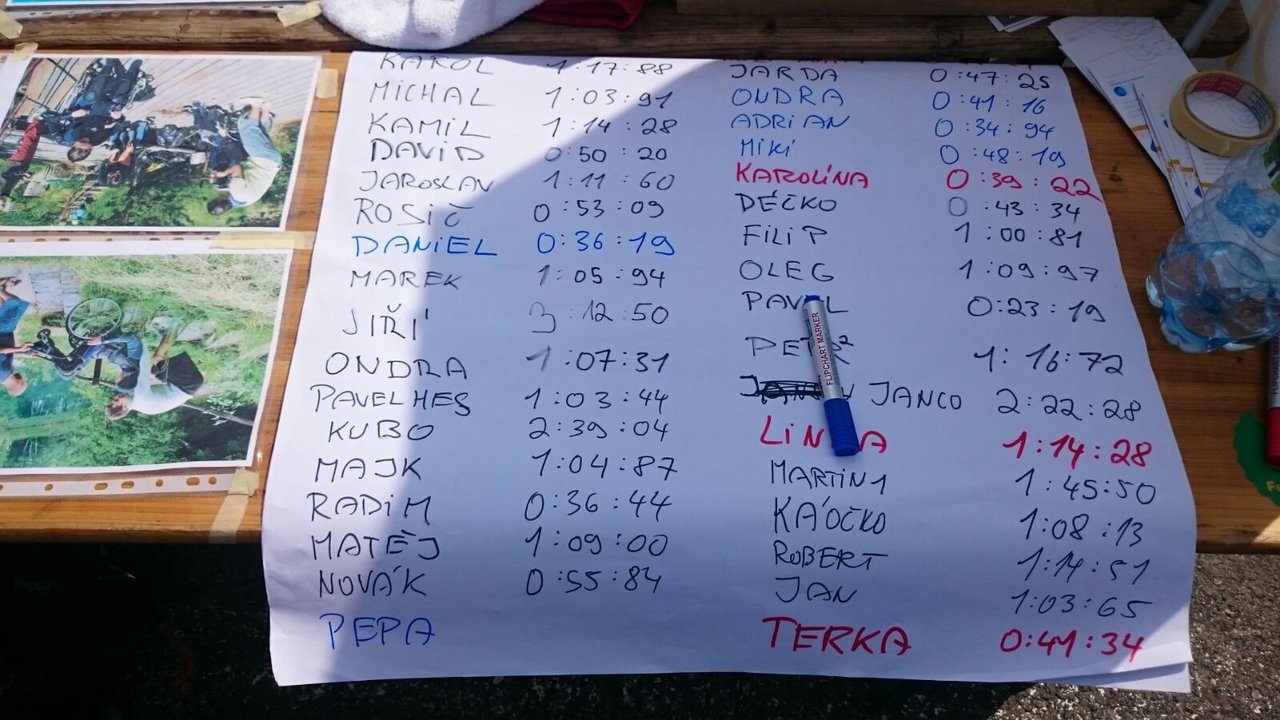 KAROL 1:17:88
MICHAL 1:03:91
KAMIL 1:14:28
DAVID 0:50:20
JAROSLAV 1:11:60
ROSIČ 0:53:09
DANIEL 0:36:19
MAREK 1:05:94
JIŘÍ 3:12:50
ONDRA 1:07:31
PAVEL HES 1:03:44
KUBO 2:39:04
MAJK 1:04:87
RADIM 0:36:44
MATĚJ 1:09:00
NOVÁK 0:55:84
PEPA
JARDA 0:47:25
ONDRA 0:41:16
ADRIAN 0:34:94
MIKI 0:48:19
KAROLÍNA 0:39:22
DÉČKO 0:43:34
FILIP 1:00:81
OLEG 1:09:97
PAVEL 0:23:19
1:16:72
JANCO 2:22:28
LINDA 1:14:28
MARTIN 1 1:45:50
KÁOČKO 1:08:13
ROBERT 1:14:51
JAN 1:03:65
TERKA 0:41:34
FLIPCHART MARKER